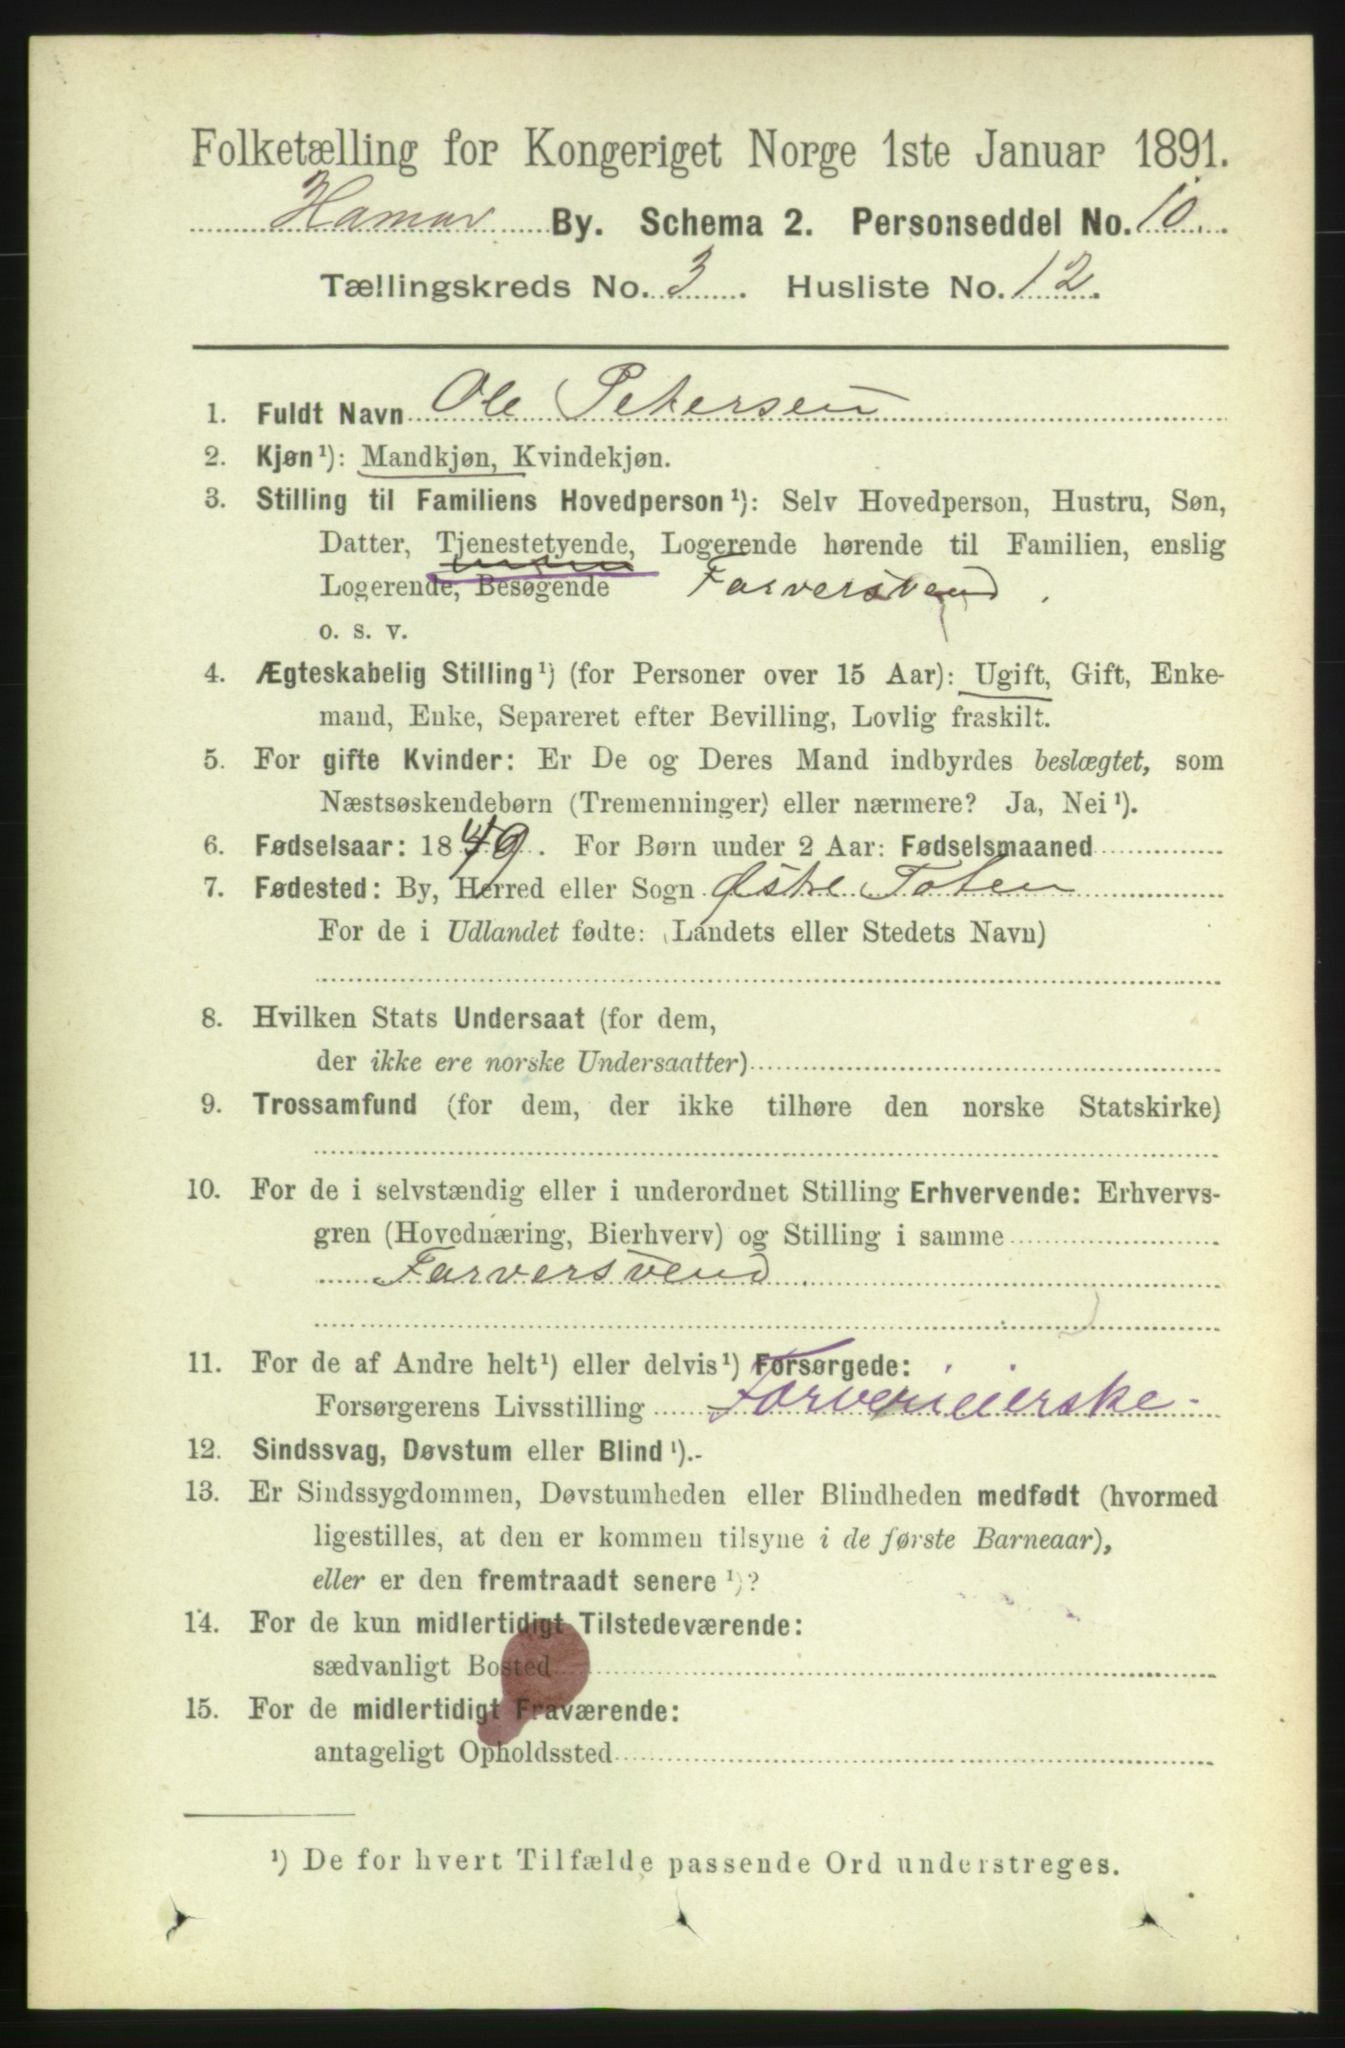 Folketælling for Kongeriget Norge 1ste Januar 1891.
Hamar By. Schema 2. Personseddel No. 10.
Tællingskreds No. 3. Husliste No. 12.
1. Fuldt Navn Ole Petersen
2. Kjøn¹): Mandkjøn, Kvindekjøn.
3. Stilling til Familiens Hovedperson¹): Selv Hovedperson, Hustru, Søn,
Datter, Tjenestetyende, Logerende hørende til Familien, enslig
Logerende, Besøgende Farversvend.
o. s. v.
4. Ægteskabelig Stilling¹) (for Personer over 15 Aar): Ugift, Gift, Enke-
mand, Enke, Separeret efter Bevilling, Lovlig fraskilt.
5. For gifte Kvinder: Er De og Deres Mand indbyrdes beslægtet, som
Næstsøskendebørn (Tremenninger) eller nærmere? Ja, Nei¹).
6. Fødselsaar: 1849. For Børn under 2 Aar: Fødselsmaaned
7. Fødested: By, Herred eller Sogn Østre Toten
For de i Udlandet fødte: (Landets eller Stedets Navn)
8. Hvilken Stats Undersaat (for dem,
der ikke ere norske Undersaatter)
9. Trossamfund (for dem, der ikke tilhøre den norske Statskirke)
10. For de i selvstændig eller i underordnet Stilling Erhvervende: Erhvervs-
gren (Hovednæring, Bierhverv) og Stilling i samme
Farversvend.
11. For de af Andre helt¹) eller delvis¹) Forsørgede:
Forsørgerens Livsstilling Farverieierske-
12. Sindssvag, Døvstum eller Blind¹).-
13. Er Sindssygdommen, Døvstumheden eller Blindheden medfødt (hvormed
ligestilles, at den er kommen tilsyne i de første Barneaar),
eller er den fremtraadt senere¹)?
14. For de kun midlertidigt Tilstedeværende:
sædvanligt Bosted
15. For de midlertidigt Fraværende:
antageligt Opholdssted
¹) De for hvert Tilfælde passende Ord understreges.